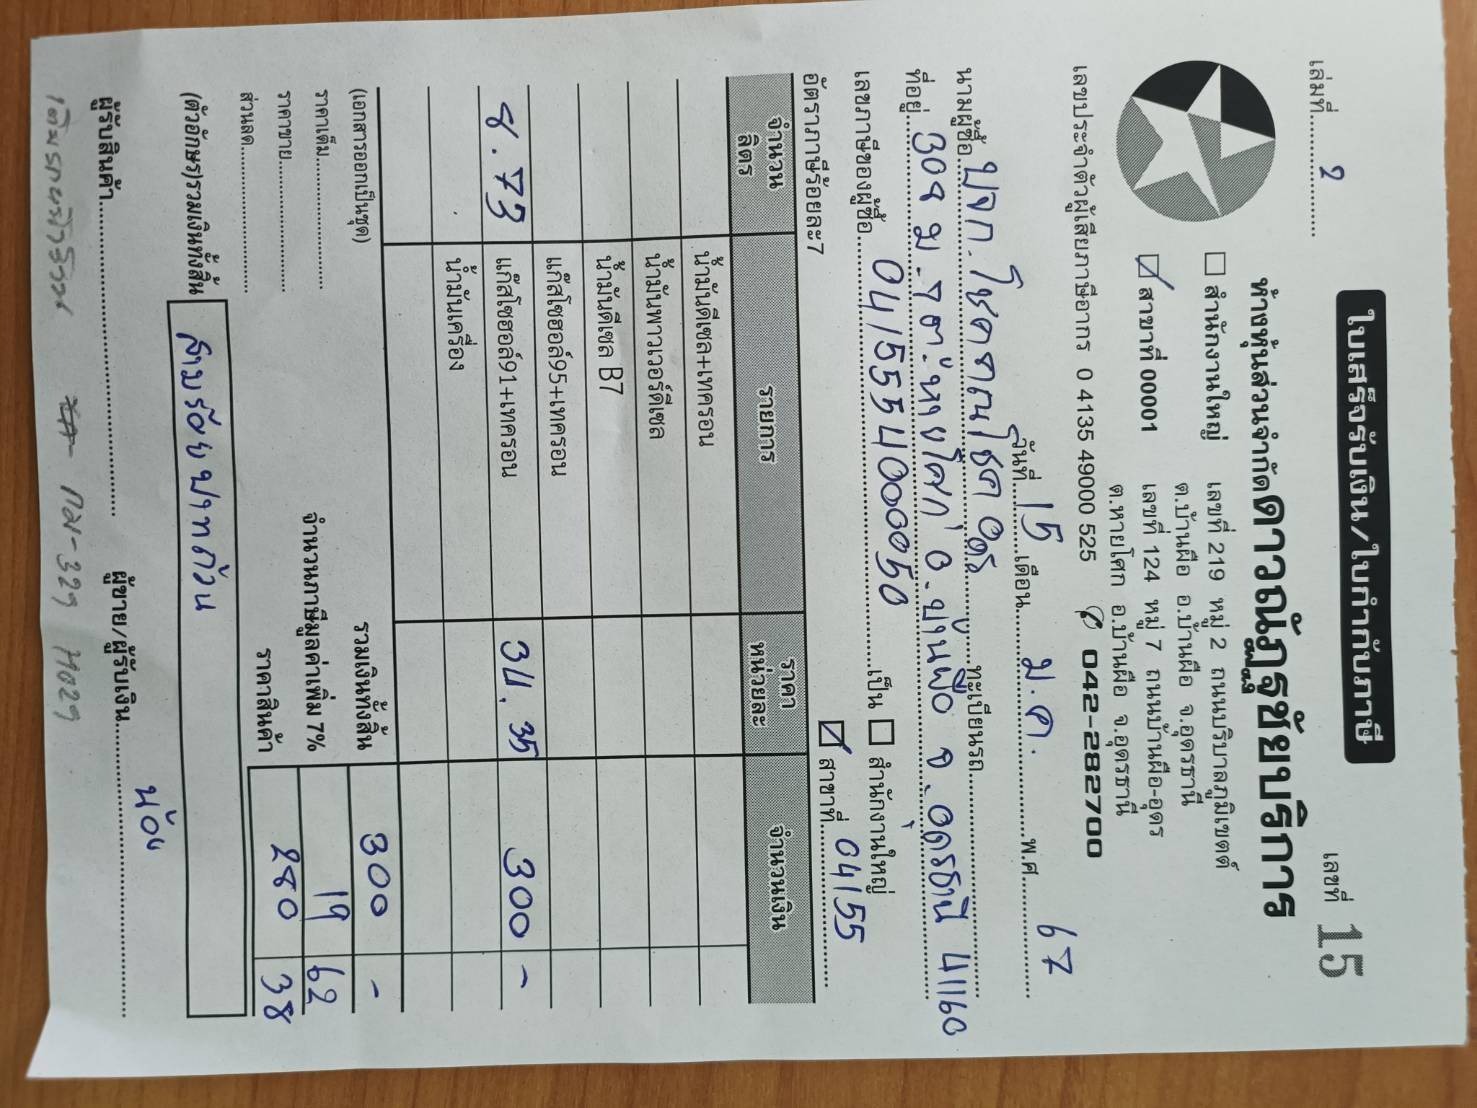 ใบเสร็จรับเงิน/ใบกำกับภาษี
เล่มที่ 2 เลขที่ 15
ห้างหุ้นส่วนจำกัดดาวณัฏฐชัยบริการ
สำนักงานใหญ่ เลขที่ 219 หมู่ 2 ถนนบริบาลภูมิเขตต์
ต.บ้านผือ อ.บ้านผือ จ.อุดรธานี
☑ สาขาที่ 00001 เลขที่ 124 หมู่ 7 ถนนบ้านผือ-อุดร
ต.หายโศก อ.บ้านผือ จ.อุดรธานี
เลขประจำตัวผู้เสียภาษีอากร 0 4135 49000 525 ✆ 042-282700
วันที่ 15 เดือน ม.ค. พ.ศ. 67
นามผู้ซื้อ บจก. โชคคณโชค ทะเบียนรถ
ที่อยู่ 309 ม.7 ต.หายโศก อ.บ้านผือ จ.อุดรธานี 41160
เลขภาษีของผู้ซื้อ 0415554000050 เป็น สำนักงานใหญ่
อัตราภาษีร้อยละ7 ☑ สาขาที่ 04155
จำนวนลิตร รายการ ราคาหน่วยละ จำนวนเงิน
น้ำมันดีเซล+เทครอน
น้ำมันพาวเวอร์ดีเซล
น้ำมันดีเซล B7
แก๊สโซฮอล์95+เทครอน
8.73 แก๊สโซฮอล์91+เทครอน 34.35 300 -
น้ำมันเครื่อง
(เอกสารออกเป็นชุด) รวมเงินทั้งสิ้น 300 -
ราคาเต็ม จำนวนภาษีมูลค่าเพิ่ม 7% 19 62
ราคาขาย ราคาสินค้า 280 38
ส่วนลด
(ตัวอักษร)รวมเงินทั้งสิ้น สามร้อยบาทถ้วน
ผู้รับสินค้า ผู้ขาย/ผู้รับเงิน น้อย
กม-329